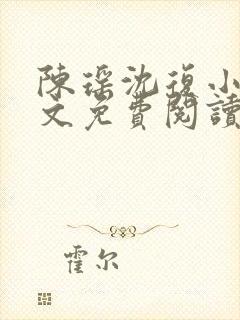 陳瑶沈復小
文免費閱讀
霍尔